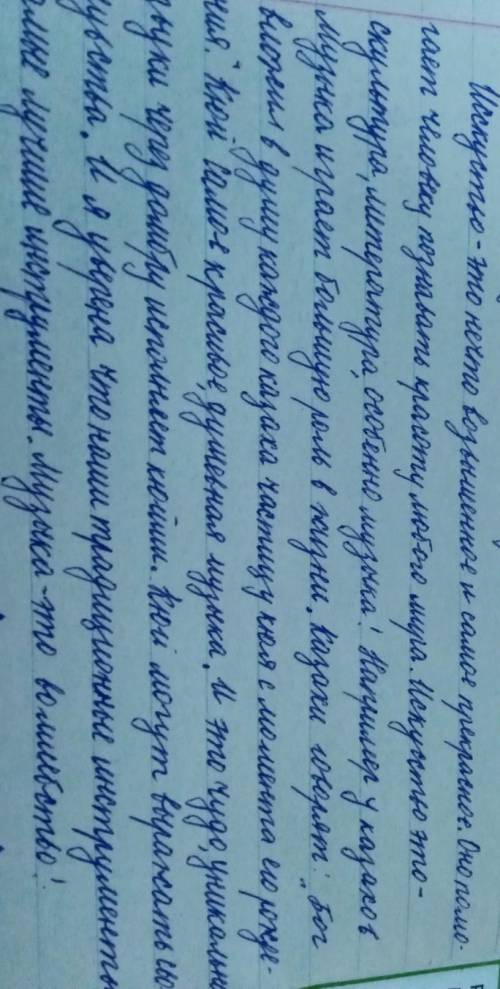 Искуство-это нечто возвышенное и самое прекрасное. Оно помо-
гает человеку познавать красоту любого мира. Искуство это-
скульптура, литература, особенно музыка! Например у казахов
Музыка играет большую роль в жизни. Казахи говорят: „Бог
вложил в душу каждого казаха частицу кюя с момента его рожде-
ния." Кюй самое красивое, душевная музыка. И это чудо, уникальны
звуки через домбру исполняет кюйши. Кюй могут выражать
чувства. И я уверена что наши традиционные инструменты
самые лучшие инструменты. Музыка-это волшебство!